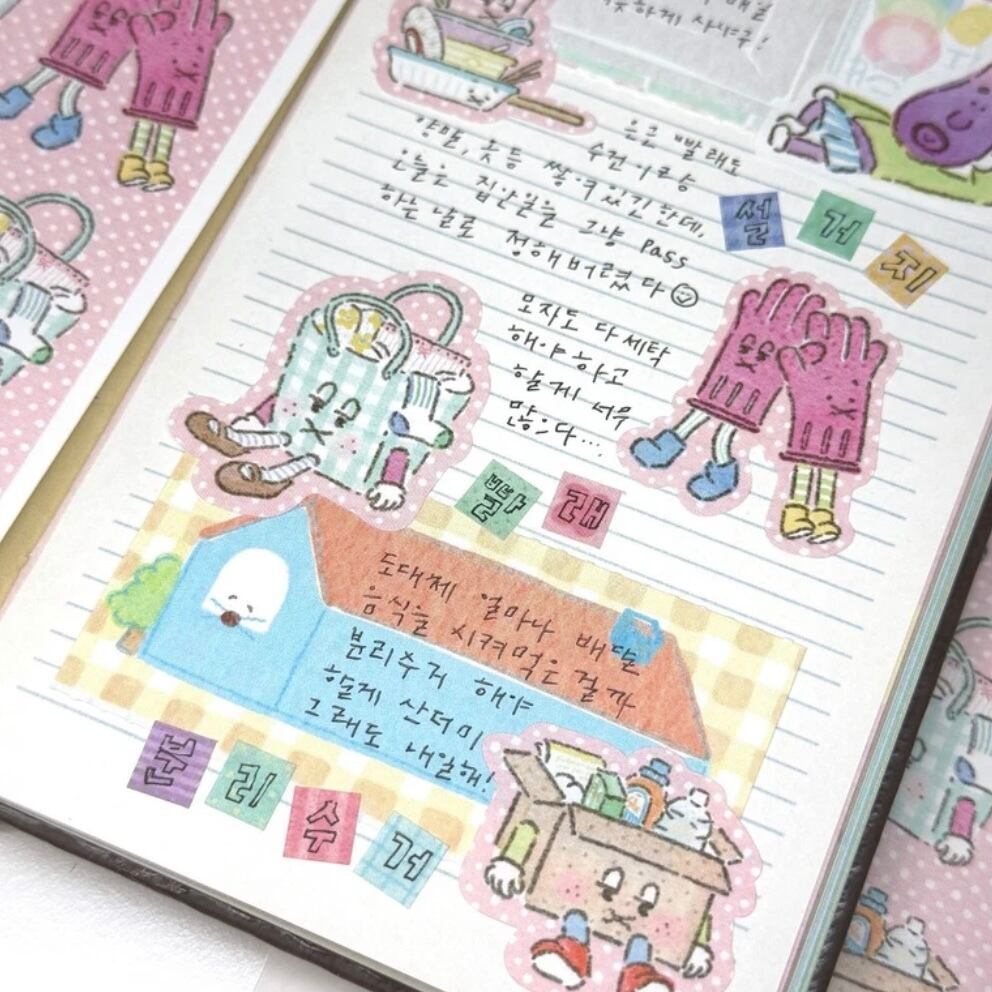 하게 사사구!
은근 빨래도
수건이랑
양말, 옷등 쌓여있긴한데,
오늘은 집안일을 그냥 pass
하는 날로 정해버렸다
설거지
모자도 다 세탁
해야 하고
할게 너무
많으다...
빨래
도대체 얼마나 배달
음식을 시켜먹은 걸까
분리수거 해야
할게 산더미
그래도 내일해!
분리수거